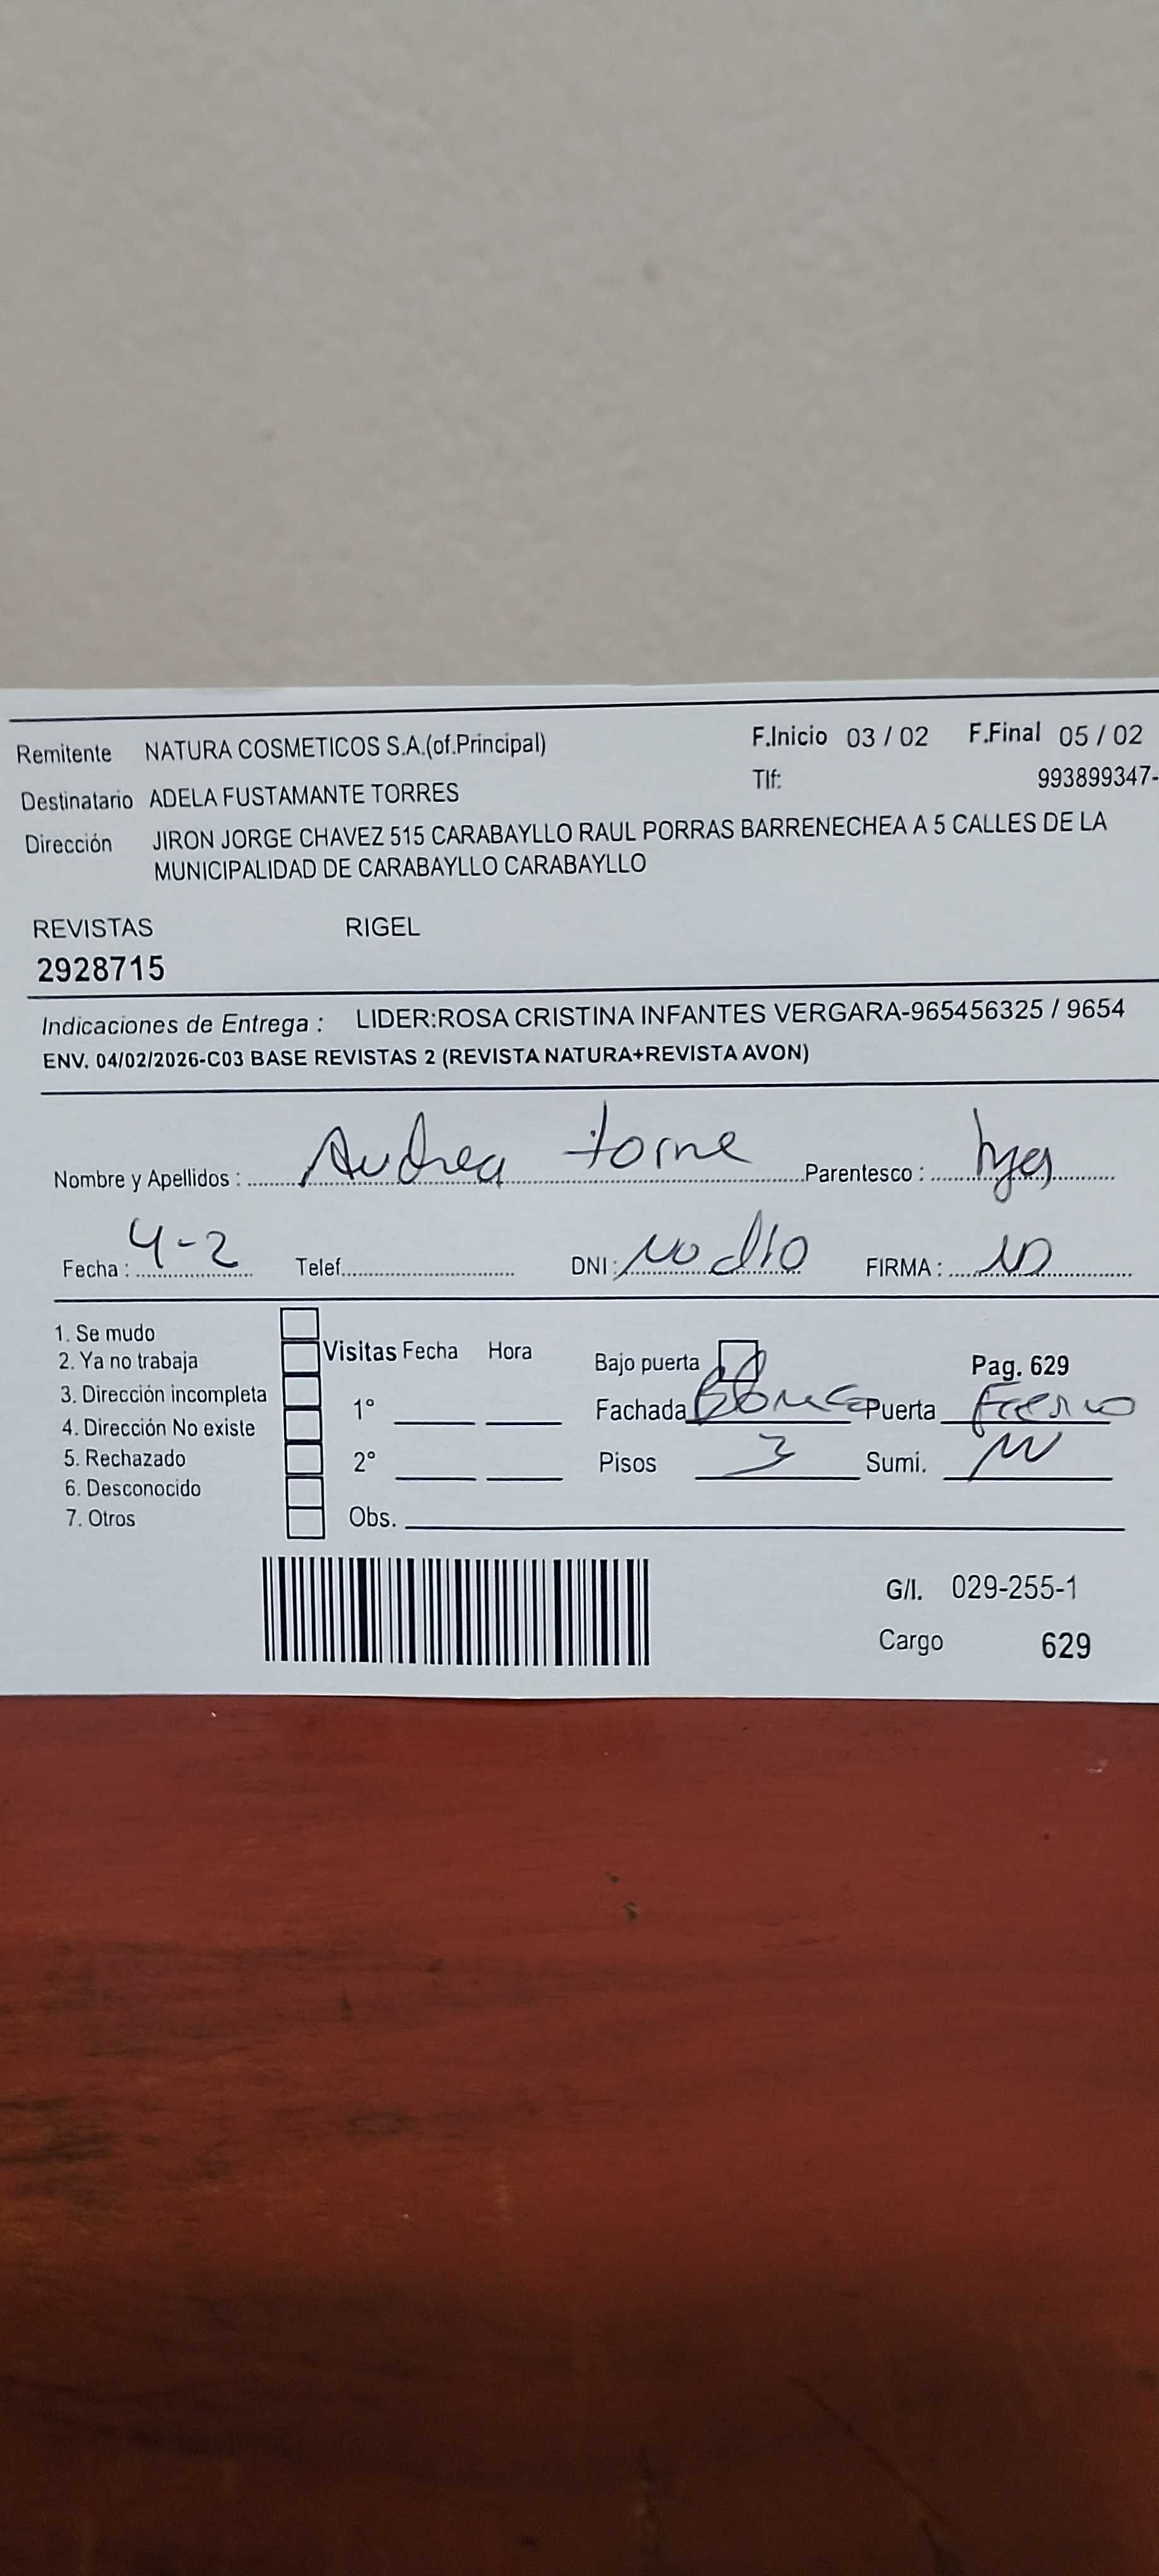 Remitente NATURA COSMETICOS S.A.(of.Principal) F.Inicio 03 / 02 F.Final 05 / 02
Destinatario ADELA FUSTAMANTE TORRES Tlf: 993899347-
Dirección JIRON JORGE CHAVEZ 515 CARABAYLLO RAUL PORRAS BARRENECHEA A 5 CALLES DE LA
MUNICIPALIDAD DE CARABAYLLO CARABAYLLO
REVISTAS RIGEL
2928715
Indicaciones de Entrega : LIDER:ROSA CRISTINA INFANTES VERGARA-965456325 / 9654
ENV. 04/02/2026-C03 BASE REVISTAS 2 (REVISTA NATURA+REVISTA AVON)
Nombre y Apellidos : Andrea Torre Parentesco :
Fecha : 4-2 Telef. DNI: No dio FIRMA :
1. Se mudo
2. Ya no trabaja Visitas Fecha Hora Bajo puerta Pag. 629
3. Dirección incompleta 1° Fachada Blanca Puerta Fierro
4. Dirección No existe
5. Rechazado 2° Pisos 3 Sumi.
6. Desconocido
7. Otros Obs.
G/I. 029-255-1
Cargo 629